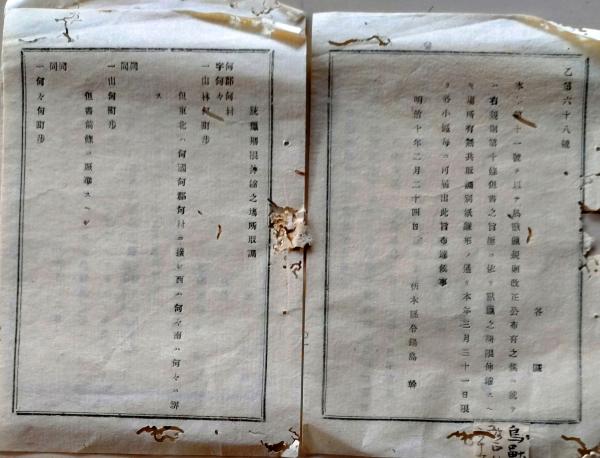 乙第六十八號
各區
本 十一號ヲ以テ鳥獸獵規則改正公布有之候ニ就テ
ハ右規則第十條但書之旨趣ニ依リ銃獵之期限伸縮スヘ
キ場所有無共取調別紙雛形ノ通リ本年三月三十一日限
リ各小區每ニ可届出此旨布達候事
明治十年二月二十四日
栃木縣令鍋島 幹
鳥獸
銃獵期限伸縮之場所取調
何郡何村
字何々
一山林何町步
但東北ハ何國何郡何村ニ接シ西ハ何々南ハ何々ニ界
ス
同
同
一山何町步
但書前條ニ照準スヘシ
同
同
一何々何町步